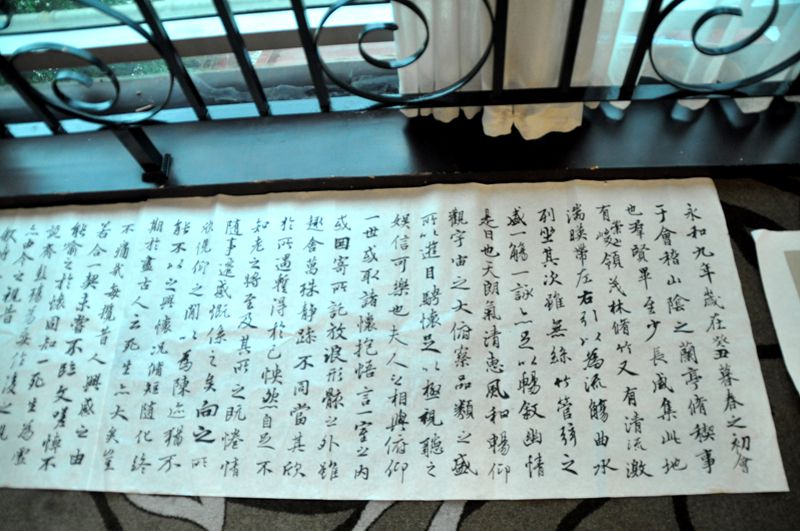 永和九年歲在癸丑暮春之初會
于會稽山陰之蘭亭脩稧事
也羣賢畢至少長咸集此地
有崇山峻領茂林脩竹又有清流激
湍暎帶左右引以為流觴曲水
列坐其次雖無絲竹管弦之
盛一觴一詠亦足以暢敘幽情
是日也天朗氣清惠風和暢仰
觀宇宙之大俯察品類之盛
所以遊目騁懷足以極視聽之
娛信可樂也夫人之相與俯仰
一世或取諸懷抱悟言一室之內
或因寄所託放浪形骸之外雖
趣舍萬殊靜躁不同當其欣
於所遇暫得於己怏然自足不
知老之將至及其所之既惓情
隨事遷感慨係之矣向之所
欣俛仰之間以為陳迹猶不
能不以之興懷況脩短隨化終
期於盡古人云死生亦大矣豈
不痛哉每攬昔人興感之由
若合一契未嘗不臨文嗟悼不
能喻之於懷固知一死生為虛
誕齊彭殤為妄作後之視
亦由今之視昔